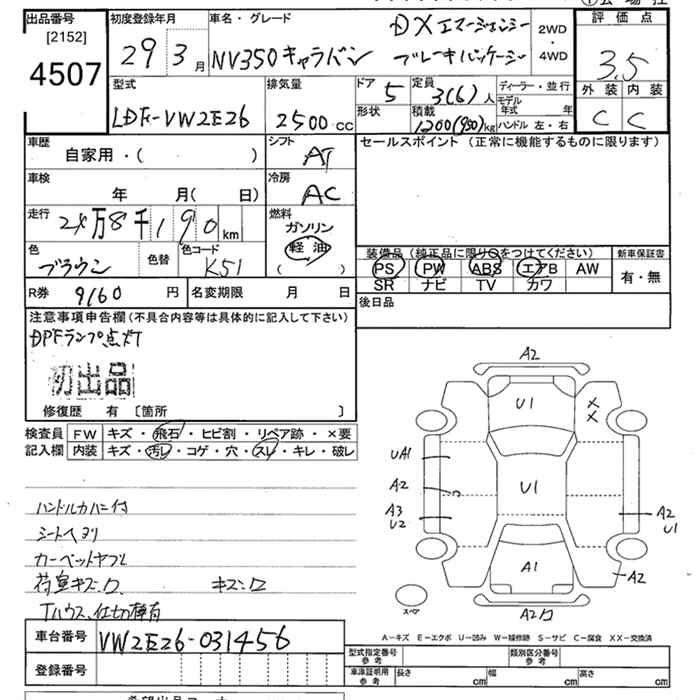 出品番号
[2152]
4507
初度登録年月
29 3月
車名・グレード
NV350キャラバン
DX エマージェンシー
ブレーキパッケージ
2WD
・
4WD
評価点
3.5
外装 内装
C C
型式
LDF-VW2E26
排気量
2500cc
ドア
5
形状
定員
3(6)人
積載
1200(950)kg
ディーラー・並行
モデル
年式 年
ハンドル 左・右
車歴
自家用・( )
シフト
AT
車検
年 月( 日)
冷房
AC
走行
24万8千190km
燃料
ガソリン
軽油
( )
色
ブラウン
色替
色コード
K51
セールスポイント(正常に機能するものに限ります)
装備品(純正品に限り○をつけてください)
PS PW ABS エアB AW
SR ナビ TV カワ
新車保証書
有・無
R券 9160円
名変期限 月 日
後日品
注意事項申告欄(不具合内容等は具体的に記入して下さい)
DPFランプ点灯
初出品
修復歴 有 〔箇所 〕
検査員 FW キズ・飛石・ヒビ割・リペア跡・×要
記入欄 内装 キズ・汚レ・コゲ・穴・スレ・キレ・破レ
ハンドルカバー付
シートヘタリ
カーペットヤブレ
荷室キズ・ロ キズ・ロ
Tハウス、仕切棒有
A2
U1
X
X
UA1
A2
A3
U2
U1
A2
U1
A1
A2
スペア
A2ロ
A-キズ E-エクボ U-凹み W-補修跡 S-サビ C-腐食 XX-交換済
車台番号 VW2E26-031456
登録番号
型式指定番号
参考
類別区分番号
参考
車庫証明用
参考
長さ cm 幅 cm 高さ cm